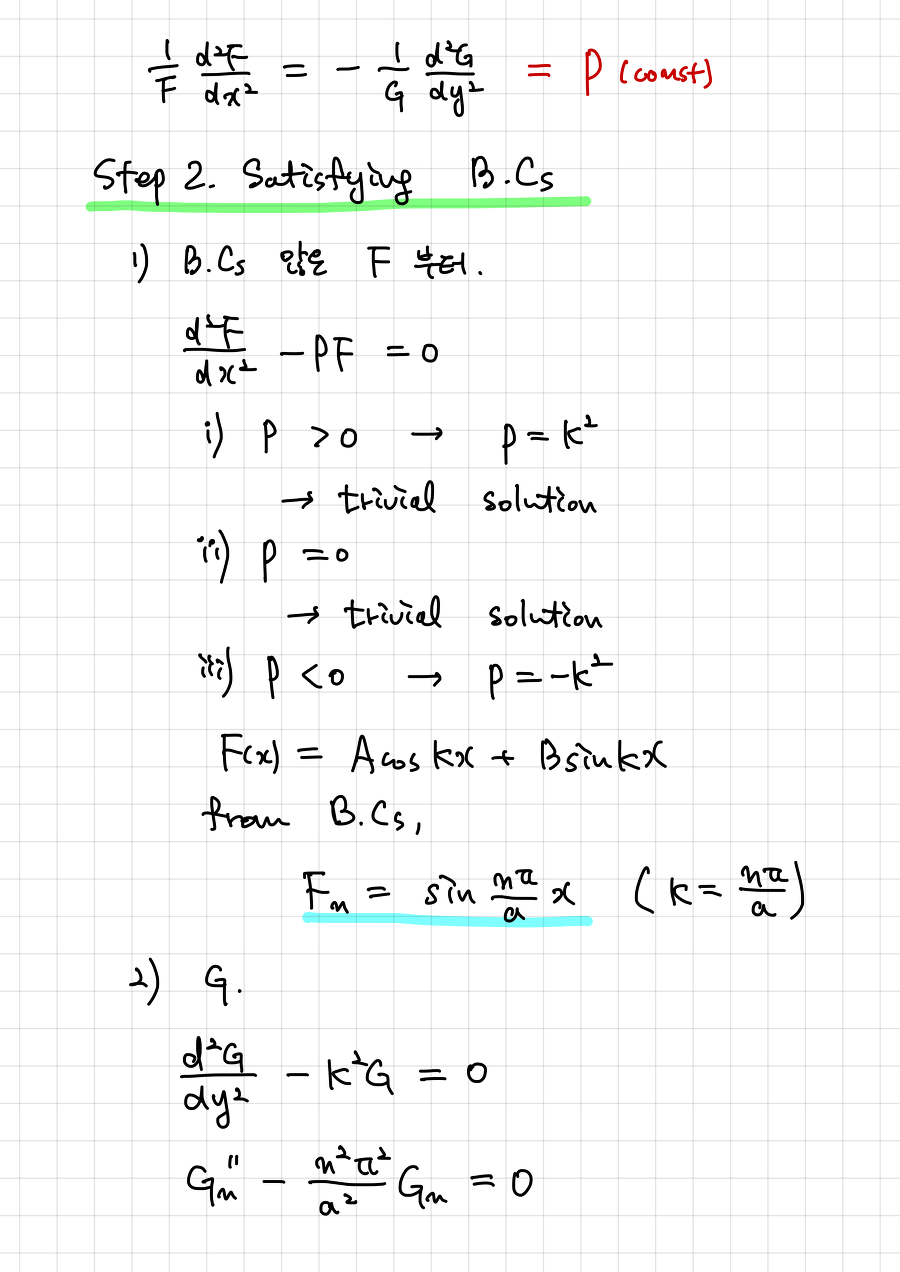 1/F d²F/dx² = - 1/G d²G/dy² = P (const)
Step 2. Satisfying B.Cs
1) B.Cs 많은 F 부터.
d²F/dx² - PF = 0
i) P > 0 → p = k²
→ trivial solution
ii) P = 0
→ trivial solution
iii) P < 0 → P = -k²
F(x) = A cos kx + B sin kx
from B.Cs,
Fₙ = sin nπ/a x (k = nπ/a)
2) G.
d²G/dy² - k²G = 0
Gₙ'' - n²π²/a² Gₙ = 0